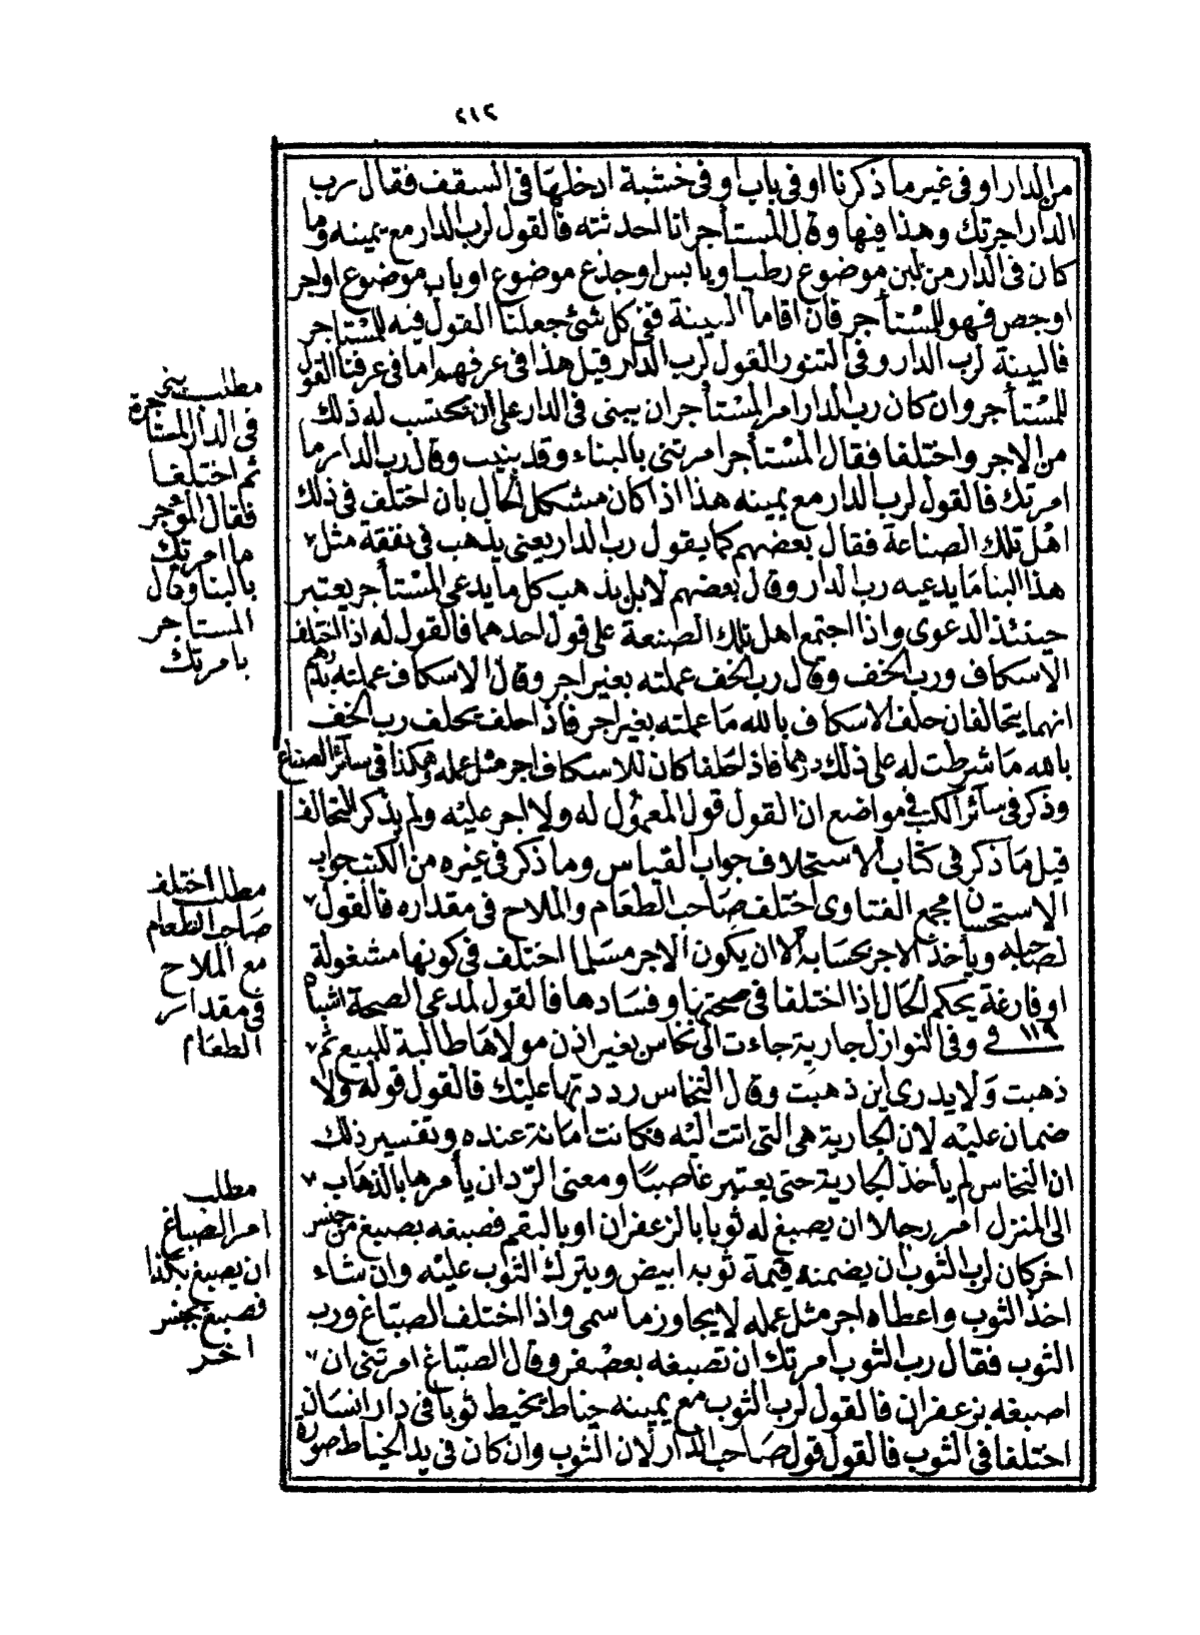 ٢١٢
من الدار او فى غير ما ذكرنا او فى باب او فى خشبة ادخلها فى السقف فقال رب
الدار اجرتك وهذا فيها وقال المستأجر انا احدثته فالقول لرب الدار مع يمينه وما
كان فى الدار من لبن موضوع رطب او يابس او جذع موضوع او باب موضوع او اجر
او جص فهو للمستأجر فان اقاما البينة ففى كل شئ جعلنا القول فيه للمستاجر
فالبينة لرب الدار وفى التنور القول لرب الدار قيل هذا فى عرفهم اما فى عرفنا القول
للمستأجر وان كان رب الدار امر المستأجر ان يبنى فى الدار على ان يحتسب له ذلك
من الاجر واختلفا فقال المستأجر امرتنى بالبناء وقد بنيت وقال رب الدار ما
امرتك فالقول لرب الدار مع يمينه هذا اذا كان مشكل الحال بان اختلف فى ذلك
اهل تلك الصناعة فقال بعضهم كما يقول رب الدار يعنى يذهب فى نفقة مثل
هذا البنا ما يدعيه رب الدار وقال بعضهم لا بل يذهب كل ما يدعى المستأجر يعتبر
حينئذ الدعوى واذا اجتمع اهل تلك الصنعة على قول احدهما فالقول له اذا اختلف
الاسكاف ورب الخف وقال رب الخف عملته بغير اجر وقال الاسكاف عملته بدرهم
انهما يتحالفان حلف الاسكاف بالله ما عملته بغير اجر فاذا حلف يحلف رب الخف
بالله ما شرطت له على ذلك درهما فاذا حلفا كان للاسكاف اجر مثل عمله وهكذا فى سائر الصناع
وذكر فى سائر الكتب فى مواضع ان القول قول المعمول له ولا اجر عليه ولم يذكر التحالف
قيل ما ذكر فى كتاب الاستحلاف جواب القياس وما ذكر فى غيره من الكتب جواب
الاستحسان مجمع الفتاوى اختلف صاحب الطعام والملاح فى مقداره فالقول
لصاحبه ويأخذ الاجر بحسابه الا ان يكون الاجر مسلما اختلف فى كونها مشغولة
او فارغة يحكم الحال اذا اختلفا فى صحتها وفسادها فالقول لمدعى الصحة اشباه
١١٩ فى وفى النوازل جارية جاءت الى نخاس بغير اذن مولاها طالبة للبيع ثم
ذهبت ولا يدرى اين ذهبت وقال النخاس رددتها عليك فالقول قوله ولا
ضمان عليه لان الجارية هى التى اتت اليه فكانت امانة عنده وتفسير ذلك
ان النخاس لم يأخذ الجارية حتى يعتبر غاصبا ومعنى الرد ان يأمرها بالذهاب
الى المنزل امر رجلا ان يصبغ له ثوبا بالزعفران او بالبقم فصبغه بصبغ من جنس
اخر كان لرب الثوب ان يضمنه قيمة ثوبه ابيض ويترك الثوب عليه وان شاء
اخذ الثوب واعطاه اجر مثل عمله لا يجاوز ما سمى واذا اختلف الصباغ ورب
الثوب فقال رب الثوب امرتك ان تصبغه بعصفر وقال الصباغ امرتنى ان
اصبغه بزعفران فالقول لرب الثوب مع يمينه خياط يخيط ثوبا فى دار انسان
اختلفا فى الثوب فالقول قول صاحب الدار لان الثوب وان كان فى يد الخياط صورة
مطلب بنى
فى الدار المستأجرة
ثم اختلفا
فقال المؤجر
ما امرتك
بالبنا وقال
المستاجر
بامرتك
مطلب اختلف
صاحب الطعام
مع الملاح
فى مقدار
الطعام
مطلب
امر الصباغ
ان يصبغ بكذا
فصبغ بجنس
اخر